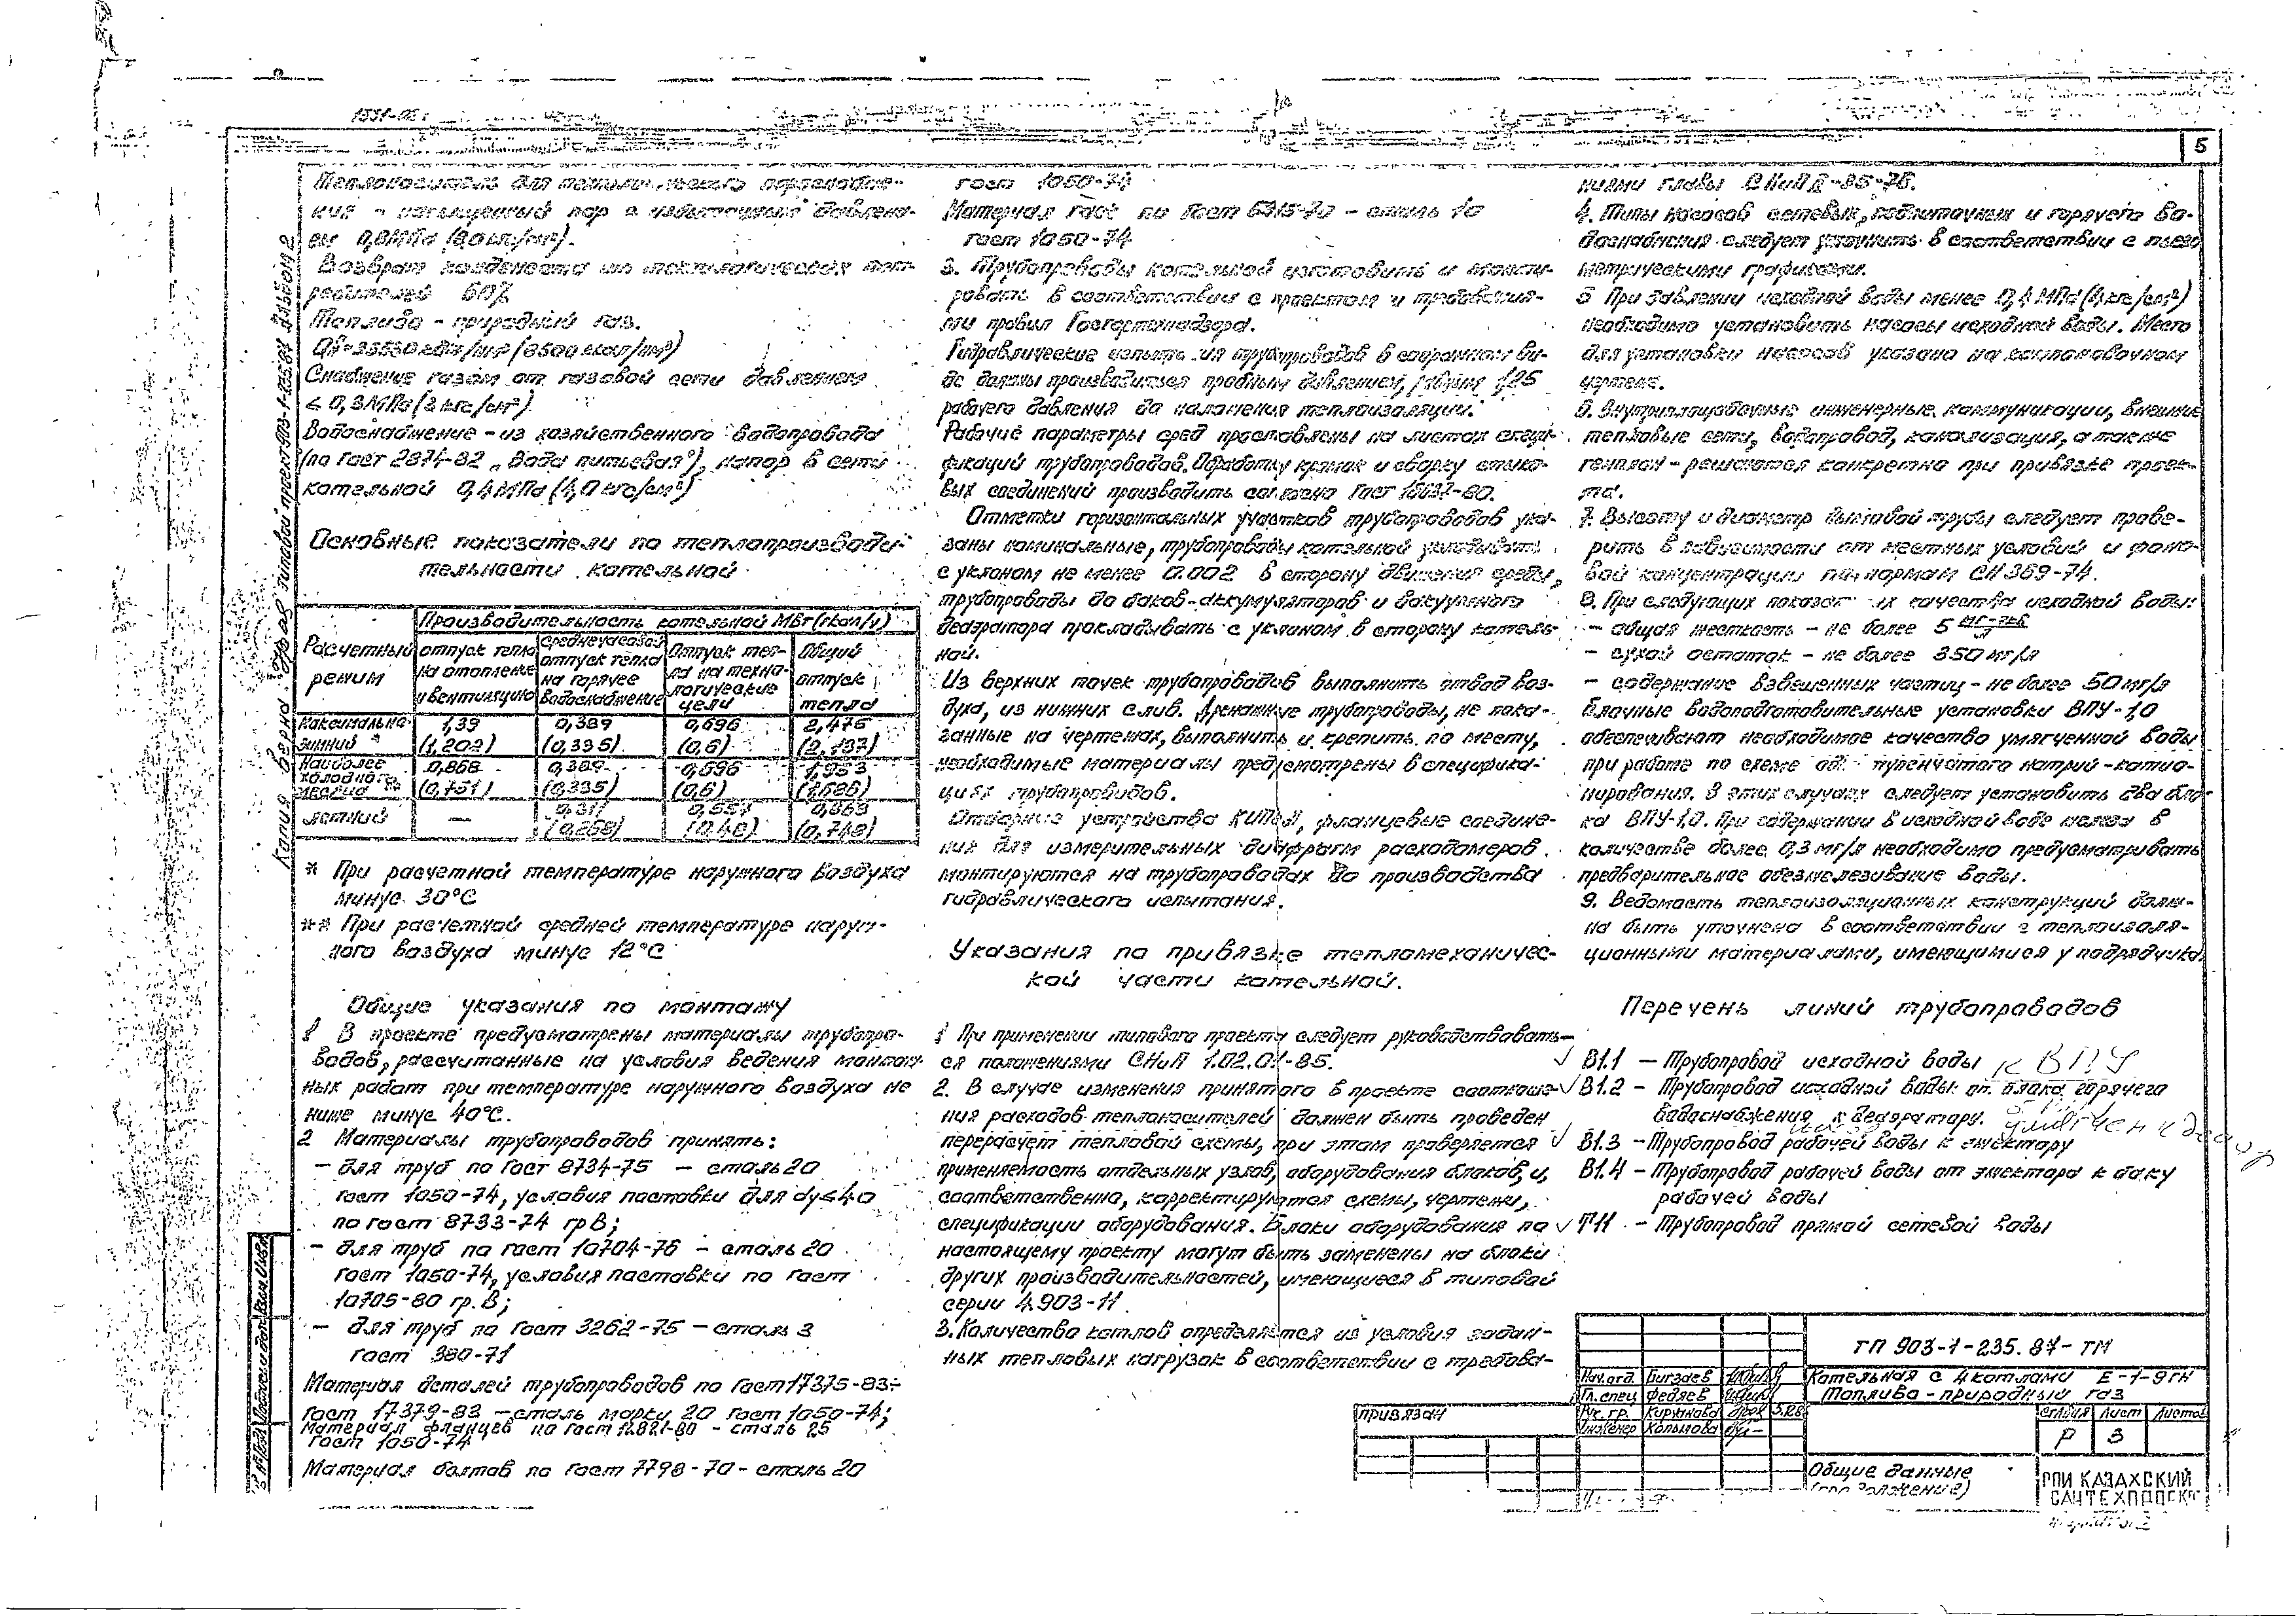 5
Теплоноситель для технологического пароснабже-
ния - насыщенный пар с избыточным давлени-
ем 0,8МПа (8,0 кгс/см²).
Возврат конденсата от технологических пот-
ребителей 60%
Топливо - природный газ.
Снабжение газом от газовой сети давлением
≤ 0,3МПа (3 кгс/см²)
Водоснабжение - из хозяйственного водопровода
(по ГОСТ 2874-82 „Вода питьевая"), напор в сети
котельной 0,4МПа (4,0 кгс/см²)
Основные показатели по теплопроизводи-
тельности котельной
Расчетный режим
Производительность котельной МВт (гкал/ч)
отпуск тепла на отопление и вентиляцию
среднечасовой отпуск тепла на горячее водоснабжение
Отпуск теп- ла на техно- логические цели
Общий отпуск тепла
Максимально- зимний * 1,39 0,389 0,696 2,475
(1,202) (0,335) (0,6) (2,137)
Наиболее холодного месяца ** 0,868 0,389 0,696 1,953
(0,751) (0,335) (0,6) (1,686)
летний — 0,311 0,557 0,868
(0,268) (0,48) (0,748)
* При расчетной температуре наружного воздуха
минус 30°С
** При расчетной средней температуре наруж-
ного воздуха минус 12°С
Общие указания по монтажу
1 В проекте предусмотрены материалы трубопро-
водов, рассчитанные на условия ведения монтаж-
ных работ при температуре наружного воздуха не
ниже минус 40°С.
2 Материалы трубопроводов принять:
- для труб по ГОСТ 8734-75 - сталь 20
ГОСТ 1050-74, условия поставки для dy≤40
по ГОСТ 8733-74 гр В;
- для труб по ГОСТ 10704-76 - сталь 20
ГОСТ 1050-74, условия поставки по ГОСТ
10705-80 гр. В;
- для труб по ГОСТ 3262-75 - сталь 3
ГОСТ 380-71
Материал деталей трубопроводов по ГОСТ 17375-83÷
ГОСТ 17379-83 - сталь марки 20 ГОСТ 1050-74;
Материал фланцев по ГОСТ 12821-80 - сталь 25
ГОСТ 1050-74
Материал болтов по ГОСТ 7798-70 - сталь 20
ГОСТ 1050-74
Материал гаек по ГОСТ 5915-70 - сталь 10
ГОСТ 1050-74
3. Трубопроводы котельной изготовить и монти-
ровать в соответствии с проектом и требования-
ми правил Госгортехнадзора.
Гидравлические испытания трубопроводов в собранном ви-
де должны производиться пробным давлением, равным 1,25
рабочего давления до наложения теплоизоляции.
Рабочие параметры сред проставлены на листах специ-
фикаций трубопроводов. Обработку кромок и сварку стыко-
вых соединений производить согласно ГОСТ 16037-80.
Отметки горизонтальных участков трубопроводов ука-
заны номинальные, трубопроводы котельной укладывать
с уклоном не менее 0.002 в сторону движения среды,
трубопроводы до баков-аккумуляторов и вакуумного
деаэратора прокладывать с уклоном в сторону котель-
ной.
Из верхних точек трубопроводов выполнить отвод воз-
духа, из нижних слив. Дренажные трубопроводы, не пока-
занные на чертежах, выполнить и крепить по месту,
необходимые материалы предусмотрены в специфика-
циях трубопроводов.
Отборные устройства КИПиА, фланцевые соедине-
ния для измерительных диафрагм расходомеров
монтируются на трубопроводах до производства
гидравлического испытания.
Указания по привязке тепломеханичес-
кой части котельной.
1 При применении типового проекта следует руководствовать-
ся положениями СНиП 1.02.01-85.
2. В случае изменения принятого в проекте соотноше-
ния расходов теплоносителей должен быть проведен
перерасчет тепловой схемы, при этом проверяется
применяемость отдельных узлов, оборудования блоков, и,
соответственно, корректируются схемы, чертежи,
спецификации оборудования. Блоки оборудования по
настоящему проекту могут быть заменены на блоки
других производительностей, имеющиеся в типовой
серии 4.903-11.
3. Количество котлов определяется из условия задан-
ных тепловых нагрузок в соответствии с требова-
ниями главы СНиП II-35-76.
4. Типы насосов сетевых, подпиточных и горячего во-
доснабжения следует уточнить в соответствии с пьезо
метрическими графиками.
5 При давлении исходной воды менее 0,4 МПа (4 кгс/см²)
необходимо установить насосы исходной воды. Место
для установки насосов указано на компоновочном
чертеже.
6. Внутриплощадочные инженерные коммуникации, внешние
тепловые сети, водопровод, канализация, а также
генплан - решаются конкретно при привязке проек-
та.
7. Высоту и диаметр дымовой трубы следует прове-
рить в зависимости от местных условий и фоно-
вой концентрации по нормам СН 369-74.
8. При следующих показателях качества исходной воды:
- общая жесткость - не более 5 мг-экв/л
- сухой остаток - не более 350 мг/л
- содержание взвешенных частиц - не более 50 мг/л
блочные водоподготовительные установки ВПУ-1,0
обеспечивают необходимое качество умягченной воды
при работе по схеме одноступенчатого натрий-катио-
нирования. В этих случаях следует установить два бло-
ка ВПУ-1,0. При содержании в исходной воде железа в
количестве более 0,3 мг/л необходимо предусматривать
предварительное обезжелезивание воды.
9. Ведомость теплоизоляционных конструкций долж-
на быть уточнена в соответствии с теплоизоля-
ционными материалами, имеющимися у подрядчика.
Перечень линий трубопроводов
В1.1 - Трубопровод исходной воды к ВПУ
В1.2 - Трубопровод исходной воды от блока горячего
водоснабжения к деаэратору.
В1.3 - Трубопровод рабочей воды к эжектору
В1.4 - Трубопровод рабочей воды от эжектора к баку
рабочей воды
Т11 - Трубопровод прямой сетевой воды
ТП 903-1-235.87-ТМ
Котельная с 4 котлами Е-1-9ГН
Топливо - природный газ
Нач.отд. Бигзаев
Гл.спец Федяев
Рук. гр. Киржнова
Инженер Копылова
Стадия Лист Листов
Р 3
Общие данные
(продолжение)
ГПИ КАЗАХСКИЙ
САНТЕХПРОЕКТ
привязан
Копия верна
Типовой проект 903-1-235.87 Альбом 2
Подпись и дата
Взам.инв.№